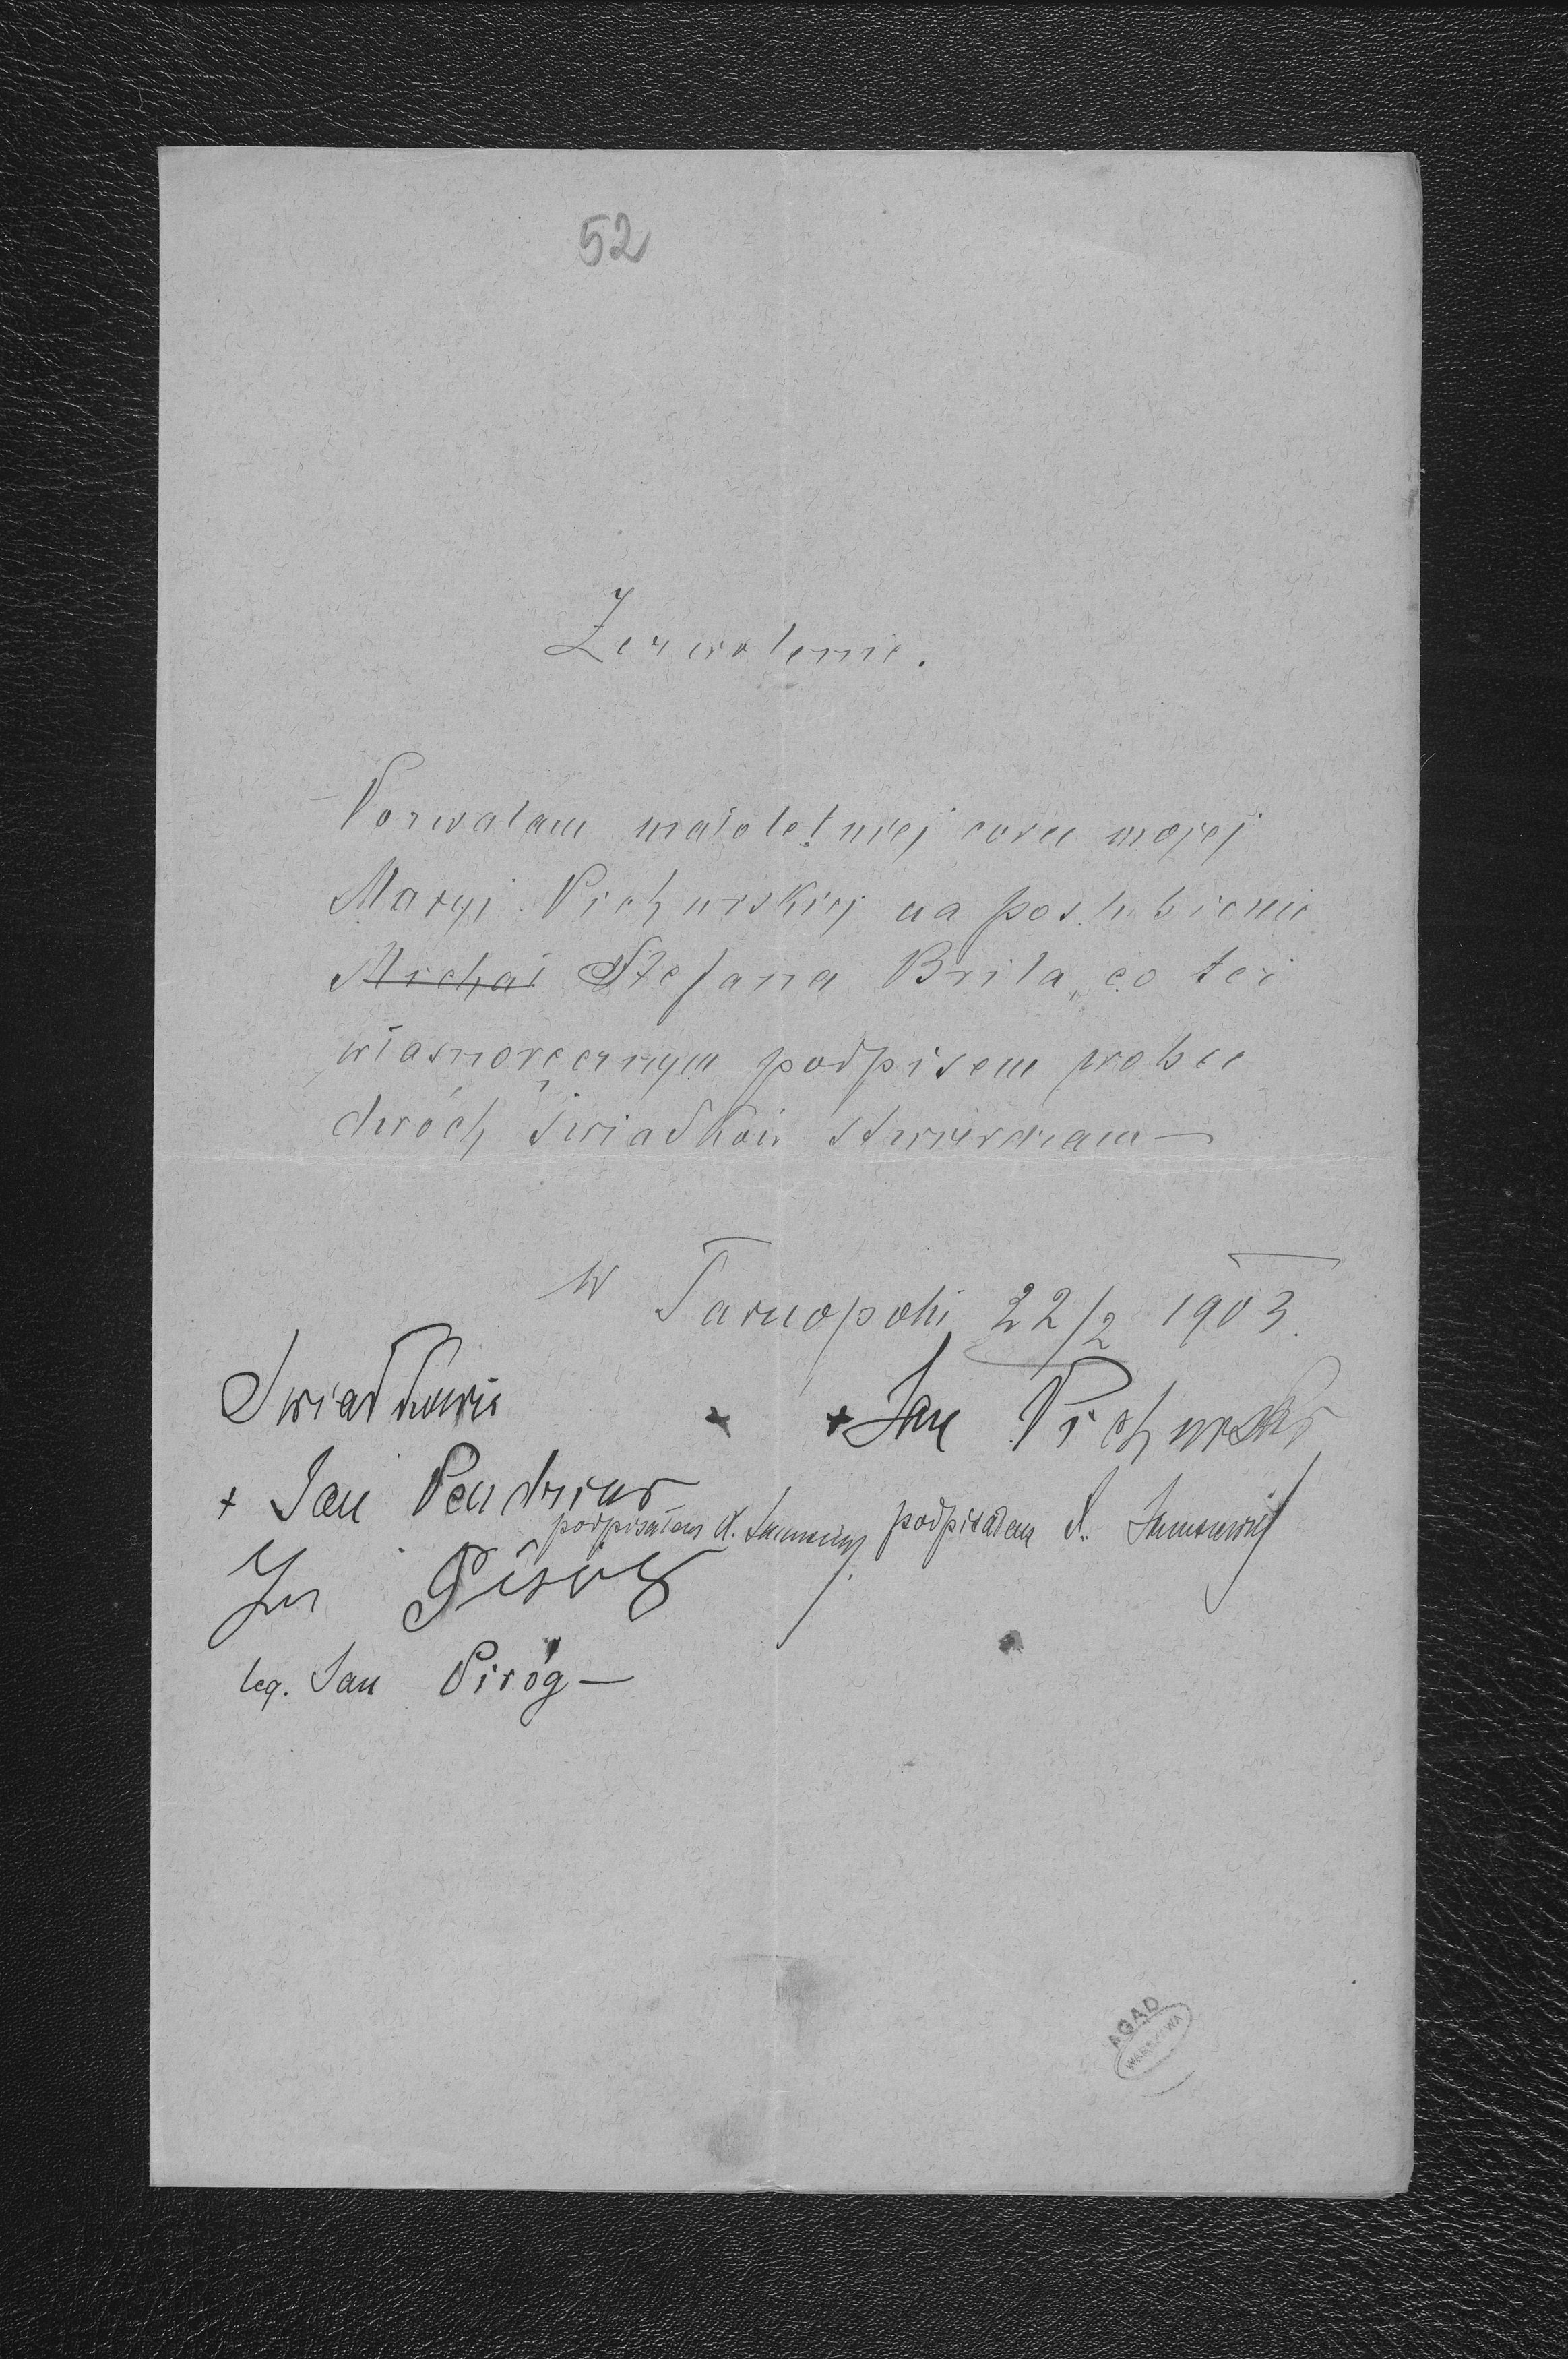 52
Zezwolenie.
Pozwalam małoletniej córce mojej
Maryi Pichurskiej na poślubienie
Michał Stefana Brila, co też
własnoręcznym podpisem wobec
dwóch świadków stwierdzam —
W Tarnopolu 22/2 1903.
Swiadkowie
+ + Jan Pichurski
+ Jan
podpisałem podpisałem
Jan
leg. Jan Piróg —
AGAD
WARSZAWA